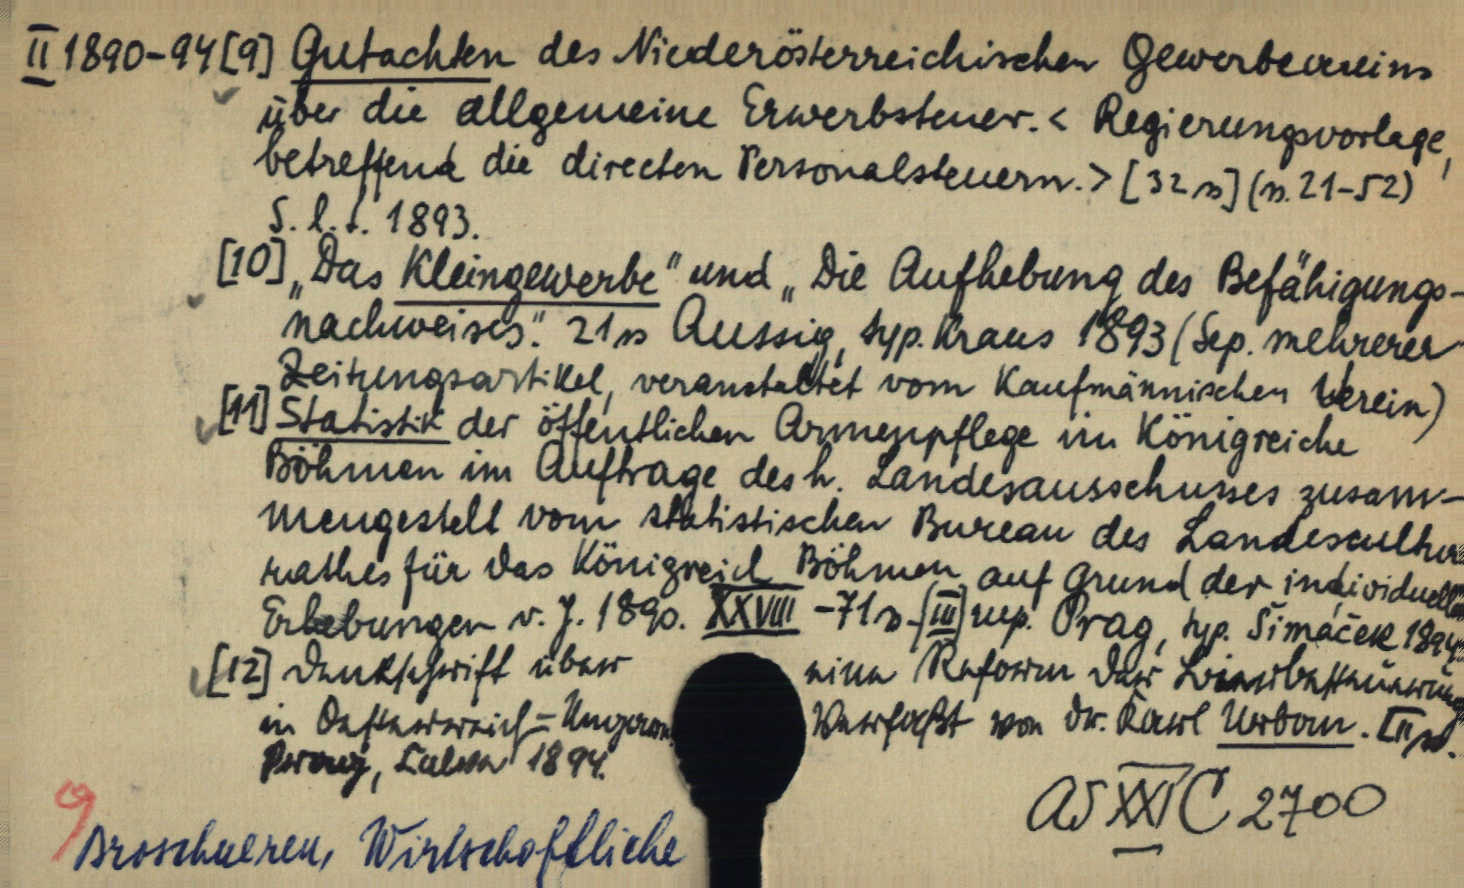 II 1890-94 [9] Gutachten des Niederösterreichischen Gewerbevereins
über die allgemeine Erwerbsteuer. < Regierungsvorlage,
betreffend die directen Personalsteuern. > [32 s] (s. 21-52)
S. l. t. 1893.
[10] „Das Kleingewerbe" und „Die Aufhebung des Befähigungs-
nachweises." 21 s Aussig, typ. Kraus 1893 (Sep. mehrerer
Zeitungsartikel, veranstaltet vom Kaufmännischen Verein)
[11] Statistik der öffentlichen Armenpflege im Königreiche
Böhmen im Auftrage des h. Landesausschusses zusam-
mengestellt vom statistischen Bureau des Landescultur
rathes für das Königreich Böhmen auf Grund der individuellen
Erhebungen v. J. 1890. XXVIII - 71 s. [III] rup. Prag, typ. Šimáček 1894
[12] Denkschrift über eine Reform der Bierbesteuerung
in Oesterreich-Ungarn. Verfaßt von Dr. Karl Urban. s.
Prag, Calve 1894.
AS XXI C 2700
9 Broschueren, Wirtschaftliche